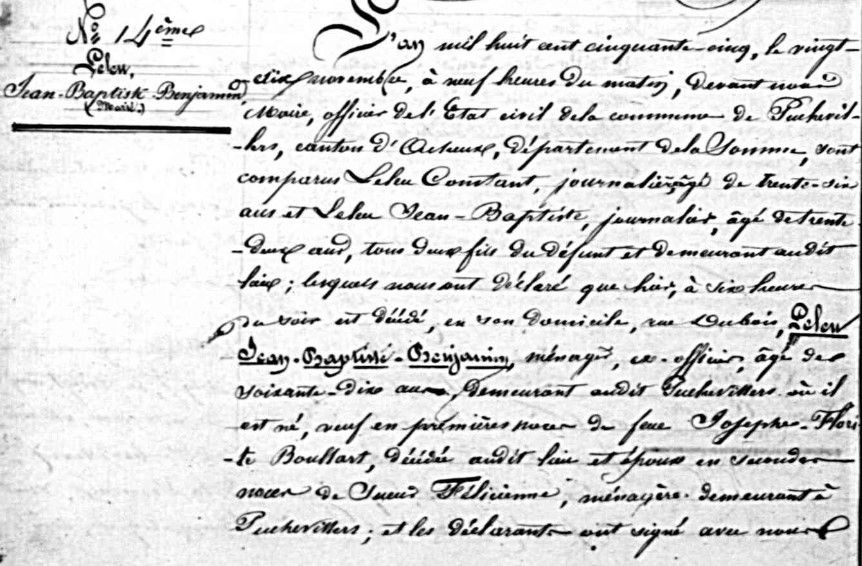 N° 14ème
Leleu,
Jean-Baptiste-Benjamin
(Marié.)
L'an mil huit cent cinquante-cinq, le vingt-
-dix novembre, à neuf heures du matin, devant nous
Maire, officier de l'Etat civil de la commune de Puchevil-
-lers, canton d'Acheux, département de la Somme, sont
comparus Leleu Constant, journalier, âgé de trente-six
ans et Leleu Jean-Baptiste, journalier, âgé de trente-
-deux ans, tous deux fils du défunt et demeurant audit
lieu; lesquels nous ont déclaré que hier, à six heures
du soir est décédé, en son domicile, rue Dubois, Leleu
Jean-Baptiste-Benjamin, ménager, ex-officier, âgé de
soixante-dix ans, demeurant audit Puchevillers où il
est né, veuf en premières noces de feue Josephe-Flori-
-te Boullart, décédée audit lieu et époux en secondes
noces de Sueur Félicienne, ménagère demeurant à
Puchevillers; et les déclarants ont signé avec nous